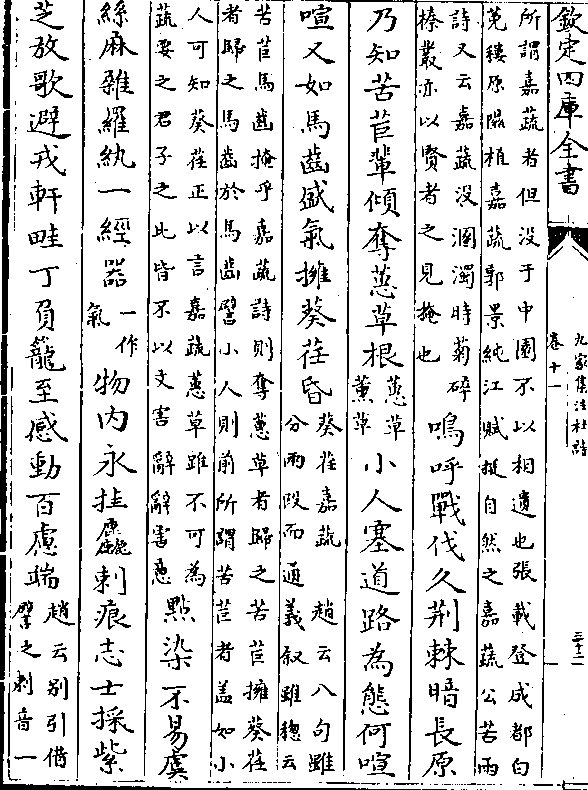 欽定四庫全書
九家集注杜詩
卷十一
三十二
所謂嘉蔬者但沒于中園不以相遺也張載登成都白
菟樓原隰植嘉蔬郭景純江賦挺自然之嘉蔬公苦雨
詩又云嘉蔬沒溷濁時菊碎
榛叢亦以賢者之見掩也
嗚呼戰伐久荆棘暗長原
乃知苦苣輩傾奪蕙草根
蕙草
薰草
小人塞道路為態何喧
喧又如馬齒盛氣擁葵荏昏
葵荏嘉蔬 趙云八句雖
分兩段而通義叙雖總云
苦苣馬齒掩乎嘉蔬詩則奪蕙草者歸之苦苣擁葵荏
者歸之馬齒於馬齒譬小人則前所謂苦苣者盖如小
人可知葵荏正以言嘉蔬蕙草雖不可為
蔬要之君子之比皆不以文害辭辭害意
點染不易虞
絲麻雜羅紈一經器
一作
氣
物内永挂麤刺痕志士採紫
芝放歌避戎軒畦丁負籠至感動百慮端
趙云别引借
譬之刺音一